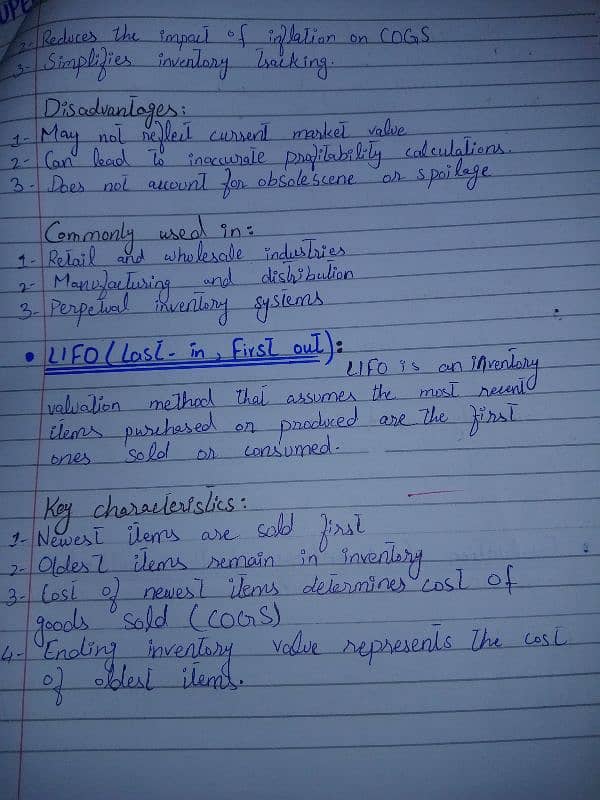 2- Reduces the impact of inflation on COGS
3- Simplifies inventory tracking.
Disadvantages:
1- May not reflect current market value
2- Can lead to inaccurate profitability calculations.
3- Does not account for obsolescene or spoilage
Commonly used in:
1- Retail and wholesale industries
2- Manufacturing and distribution
3- Perpetual inventory systems
• LIFO (Last- in, First out):
LIFO is an inventory
valuation method that assumes the most recent
items purchased or produced are the first
ones sold or consumed.
Key characteristics:
1- Newest items are sold first
2- Oldest items remain in inventory
3- Cost of newest items determines cost of
goods sold (COGS)
4- Ending inventory value represents the cost
of oldest items.